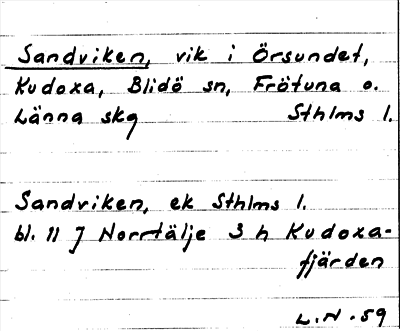 Sandviken, vik i Örsundet,
Kudoxa, Blidö sn, Frötuna o.
Länna skg Sthlms l.
Sandviken, ek Sthlms l.
bl. 11 J Norrtälje 3 h Kudoxa-
fjärden
L.N. 59